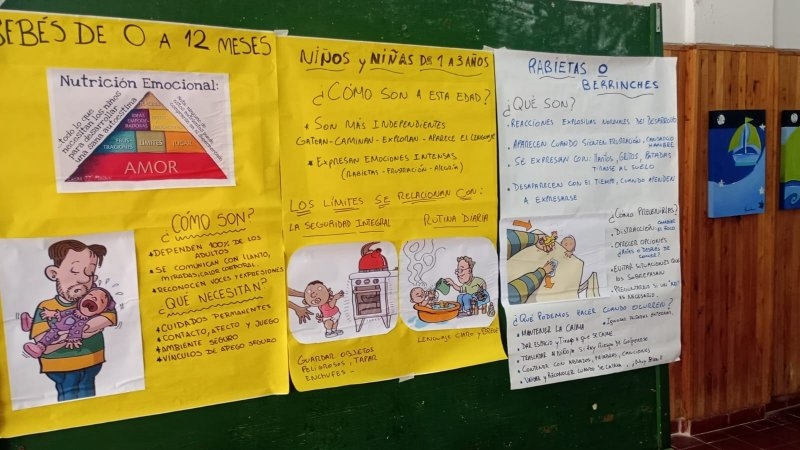 BEBÉS DE 0 A 12 MESES
Nutrición Emocional:
todo lo que
necesitan los niños
para desarrollar
una sana autoestima
IDEAS
EMPODE-
RADORAS
FRUS
TRACIONES
LÍMITES
JUGAR
AMOR
¿CÓMO SON?
* DEPENDEN 100% DE LOS
ADULTOS
* SE COMUNICAN CON LLANTO,
MIRADAS, CORPORAL.
* RECONOCEN VOCES Y EXPRESIONES
¿QUÉ NECESITAN?
* CUIDADOS PERMANENTES
* CONTACTO, AFECTO Y JUEGO
* AMBIENTE SEGURO
* VÍNCULOS DE APEGO SEGURO
NIÑOS y NIÑAS DE 1 A 3 AÑOS
¿CÓMO SON A ESTA EDAD?
* SON MÁS INDEPENDIENTES
GATEAN-CAMINAN-EXPLORAN-APARECE EL LENGUAJE
* EXPRESAN EMOCIONES INTENSAS
(RABIETAS-FRUSTRACIÓN-ALEGRÍA)
LOS LÍMITES SE RELACIONAN CON:
LA SEGURIDAD INTEGRAL
RUTINA DIARIA
GUARDAR OBJETOS
PELIGROSOS, TAPAR
ENCHUFES-
LENGUAJE CLARO Y BREVE
RABIETAS O
BERRINCHES
¿QUÉ SON?
• REACCIONES EXPLOSIVAS NORMALES DEL DESARROLLO
• APARECEN CUANDO SIENTEN FRUSTRACIÓN, CANSANCIO
HAMBRE
• SE EXPRESAN CON: LLANTOS, GRITOS, PATADAS
TIRARSE AL SUELO
• DESAPARECEN CON EL TIEMPO, CUANDO APRENDEN
A EXPRESARSE
¿CÓMO PREVENIRLAS?
• DISTRACCIÓN: CAMBIAR
EL FOCO
• OFRECER OPCIONES
¿ANTES O DESPUÉS DE
COMER?
• EVITAR SITUACIONES QUE
LOS SOBREPASAN
• PREGUNTARSE SI UN "NO"
ES NECESARIO
¿QUÉ PODEMOS HACER CUANDO OCURREN?
• MANTENER LA CALMA
• DAR ESPACIO y Tiempo A QUE SE CALME
• TRASLADAR AL NIÑO/A SI HAY RIESGO DE GOLPEARSE
• CONTENER CON ABRAZOS, PALABRAS, CANCIONES